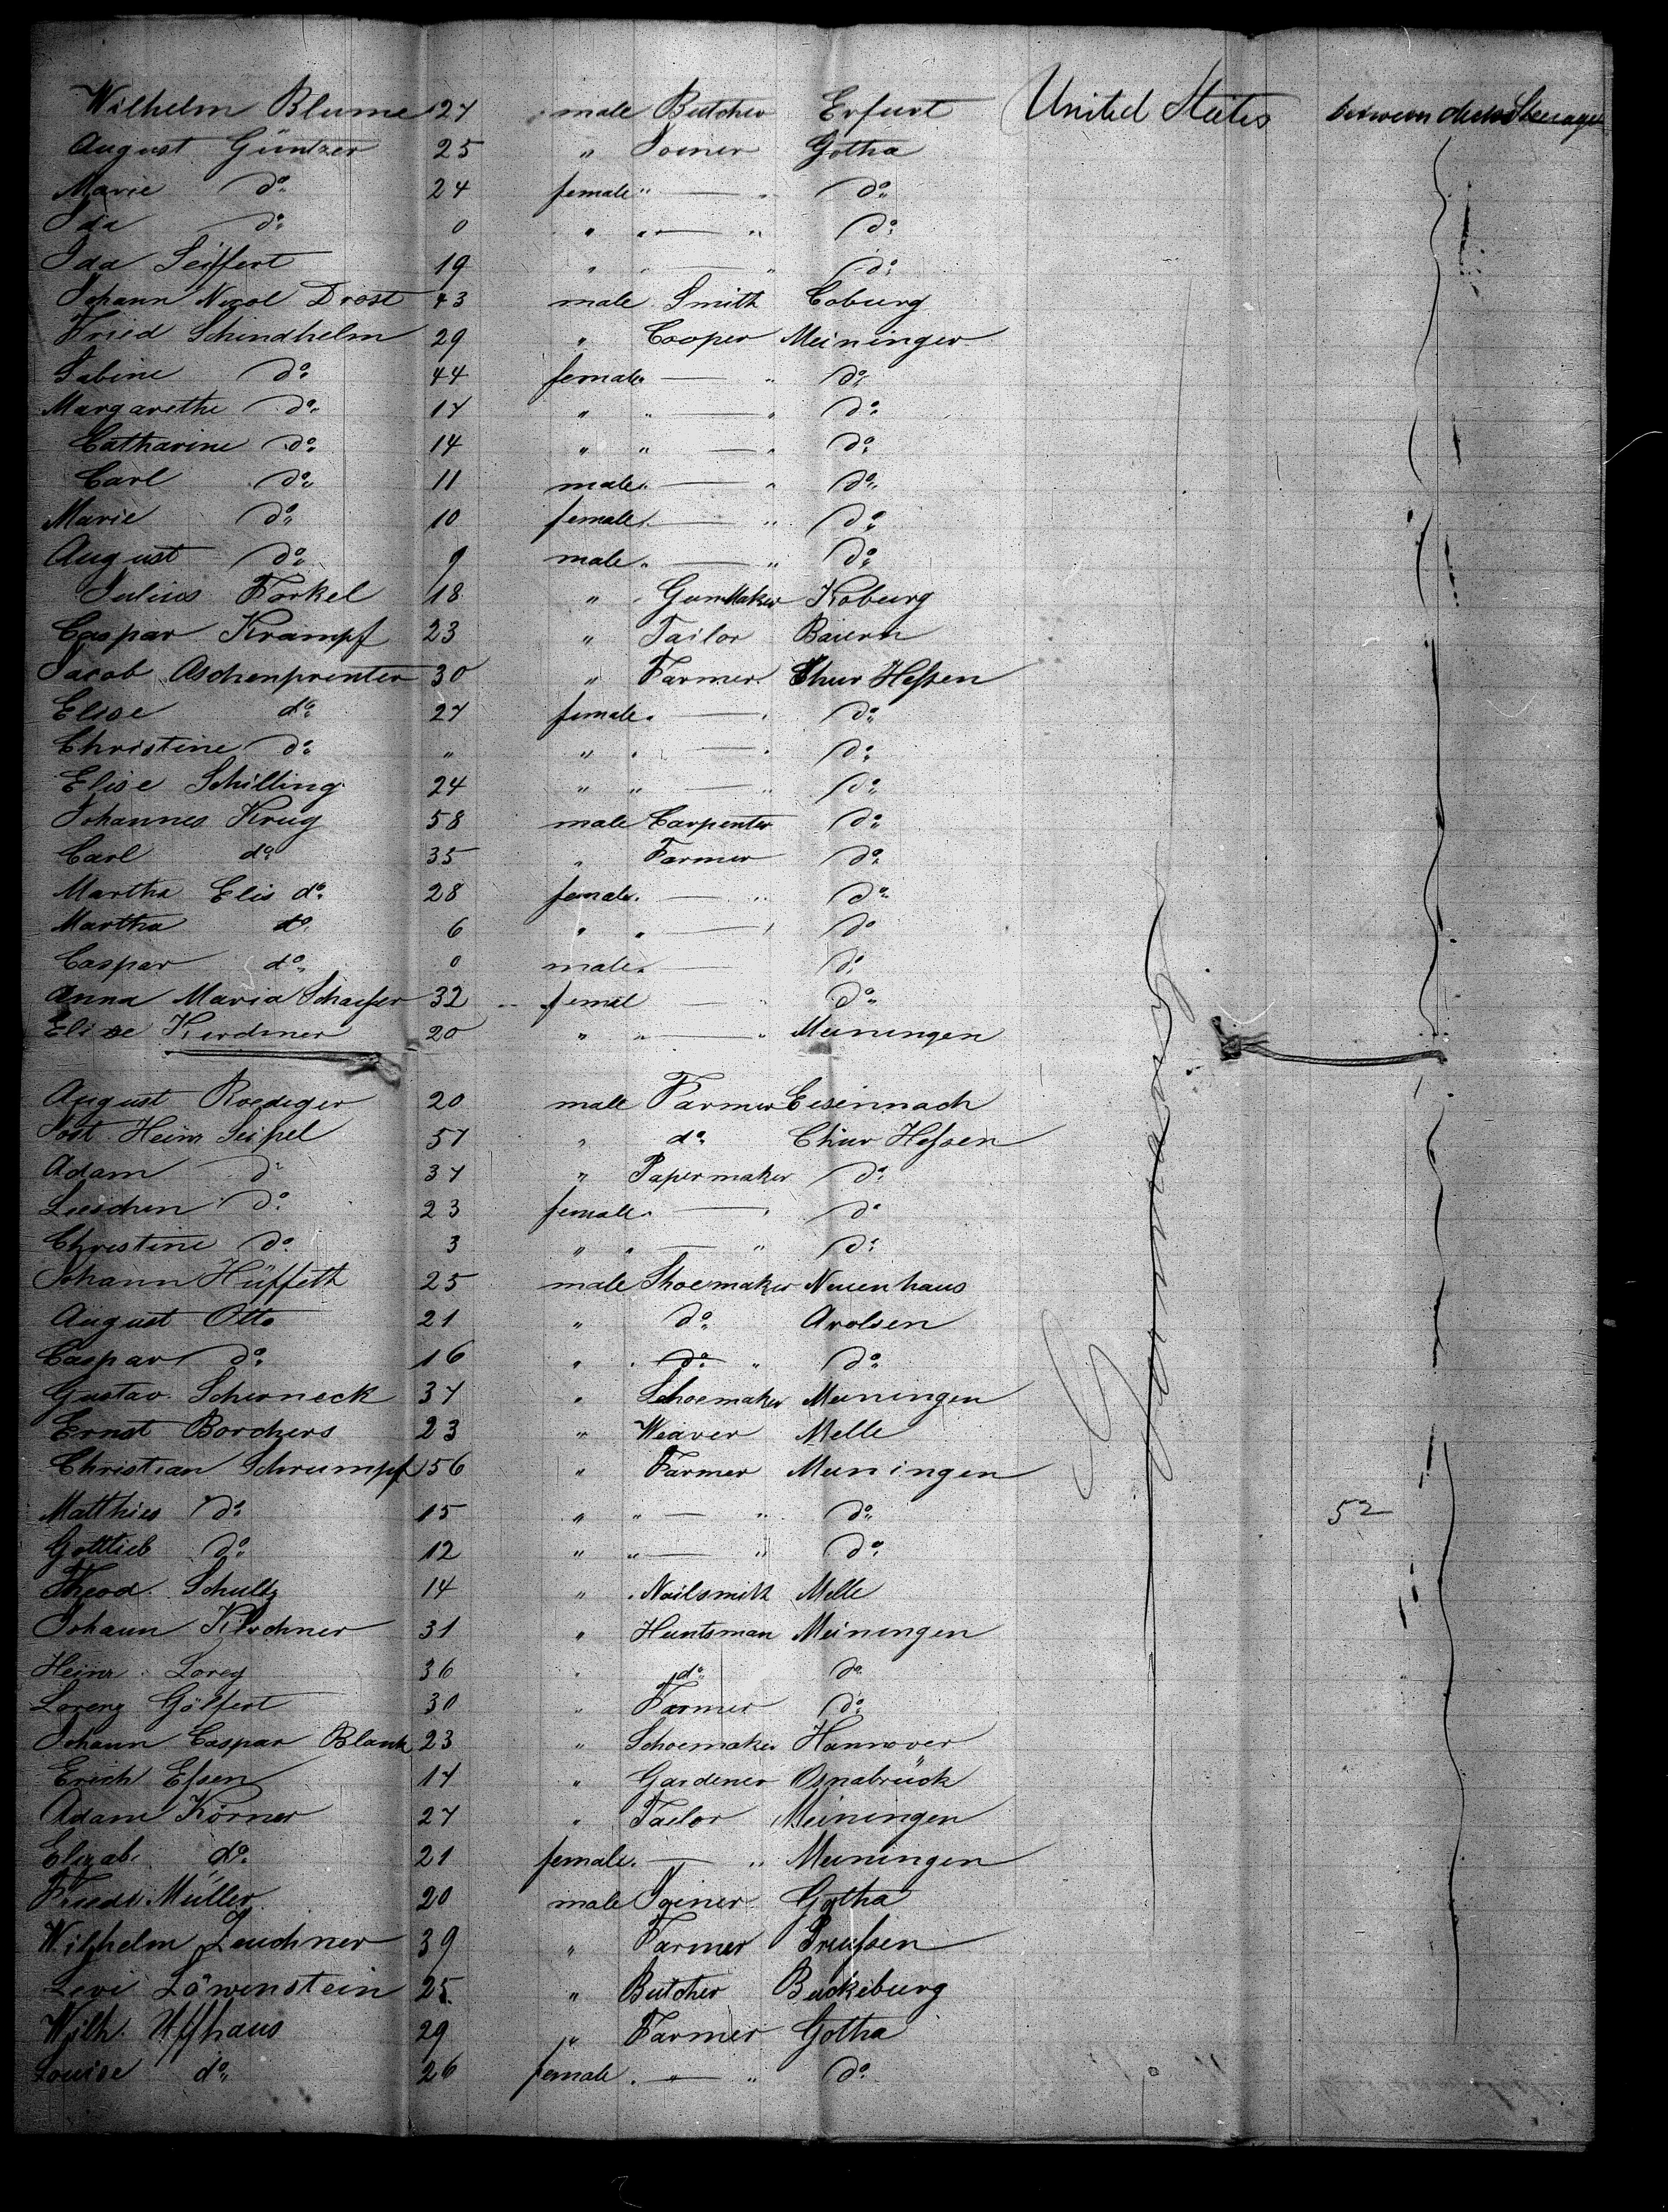 Wilhelm Blume 27 male Butcher Erfurt United States between decks Steerage
August Güntzer 25 " Joiner Gotha
Marie do 24 female " — " do
Ida do 0 " " — " do
Ida Seiffert 19 " " — " do
Johann Nicol Drost 43 male Smith Coburg
Fried Schindhelm 29 " Cooper Meininger
Sabine do 44 female " — " do
Margarethe do 17 " " — " do
Catharine do 14 " " — " do
Carl do 11 male " — " do
Marie do 10 female " — " do
August do 9 male " — " do
Julius Forkel 18 " Gun Maker Koburg
Caspar Krampf 23 " Tailor Baiern
Jacob Aschenprenter 30 " Farmer Chur Hessen
Elise do 27 female " — " do
Christine do " " " — " do
Elise Schilling 24 " " — " do
Johannes Krug 58 male Carpenter do
Carl do 35 " Farmer do
Martha Elis do 28 female " — " do
Martha do 6 " " — " do
Caspar do 0 male " — do
Anna Maria Schaefer 32 femal — " do
Elise 20 " " — " Meiningen
August Roediger 20 male Farmer Eisennach
Jost Heinr Seipel 57 " do Chur Hessen
Adam do 37 " Papermaker do
Lieschen do 23 female " — " do
Christine do 3 " " — " do
Johann Hüffeth 25 male Shoemaker Neuenhaus
August Otto 21 " do Arolsen
Caspar do 16 " " do " do
Gustav Scherneck 37 " Schoemaker Meiningen
Ernst Borchers 23 " Weaver Melle
Christian Schrumpf 56 " Farmer Meiningen
Matthies do 15 " " — " do 52
Gottlieb do 12 " " — " do
Theod. Schultz 14 " Nailsmith Melle
Johann Kirchner 31 " Huntsman Meiningen
Heinr. Lorey 36 " do do
Lorenz Gölfert 30 " Farmer do
Johann Caspar Blank 23 " Schoemaker Hannover
Erich Essen 17 " Gardener Osnabrück
Adam Körner 27 " Tailor Meiningen
Elizab. do 21 female " — " Meiningen
Friedr. Müller 20 male Joiner Gotha
Wilhelm Leuchner 39 " Farmer Preussen
Levi Löwenstein 25 " Butcher Buckeburg
Wilh. Uffhaus 29 " Farmer Gotha
Louise do 26 female " — " do
Germany